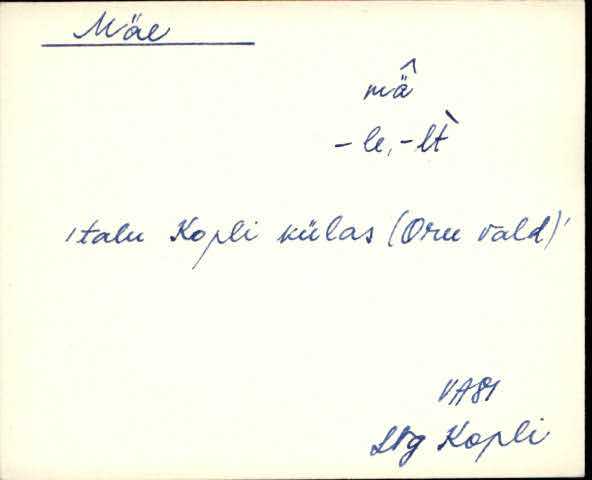 Mäe
mä̂
-le, -lt̀
'talu Kopli külas (Oru vald)'
VA81
Ltg Kopli